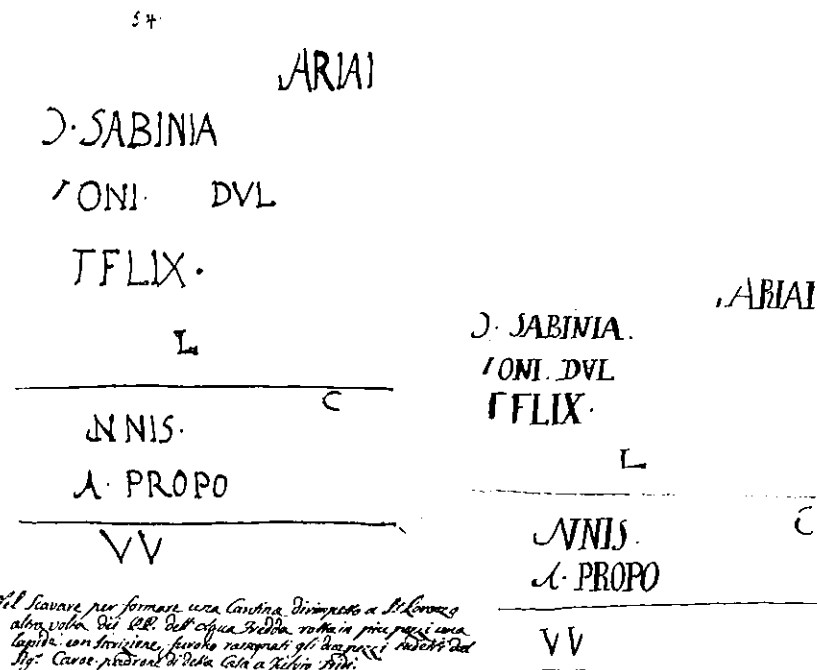 54.
ARIAI
Ɔ·SABINIA
ONI· DVL
TFLIX·
L
C
NNIS·
A· PROPO
VV
Nel scavare per formare una Cantina dirimpetto a S. Lorenzo
altra volta dei PP. dell'Acqua Fredda rotta in più pezzi una
lapide con Inscrizione, furono rassegnati gli due pezzi dal
Sigr. padrone di detta Casa a
ARIAI
Ɔ· SABINIA.
ONI. DVL
FLIX·
L
C
NNIS.
A· PROPO
VV